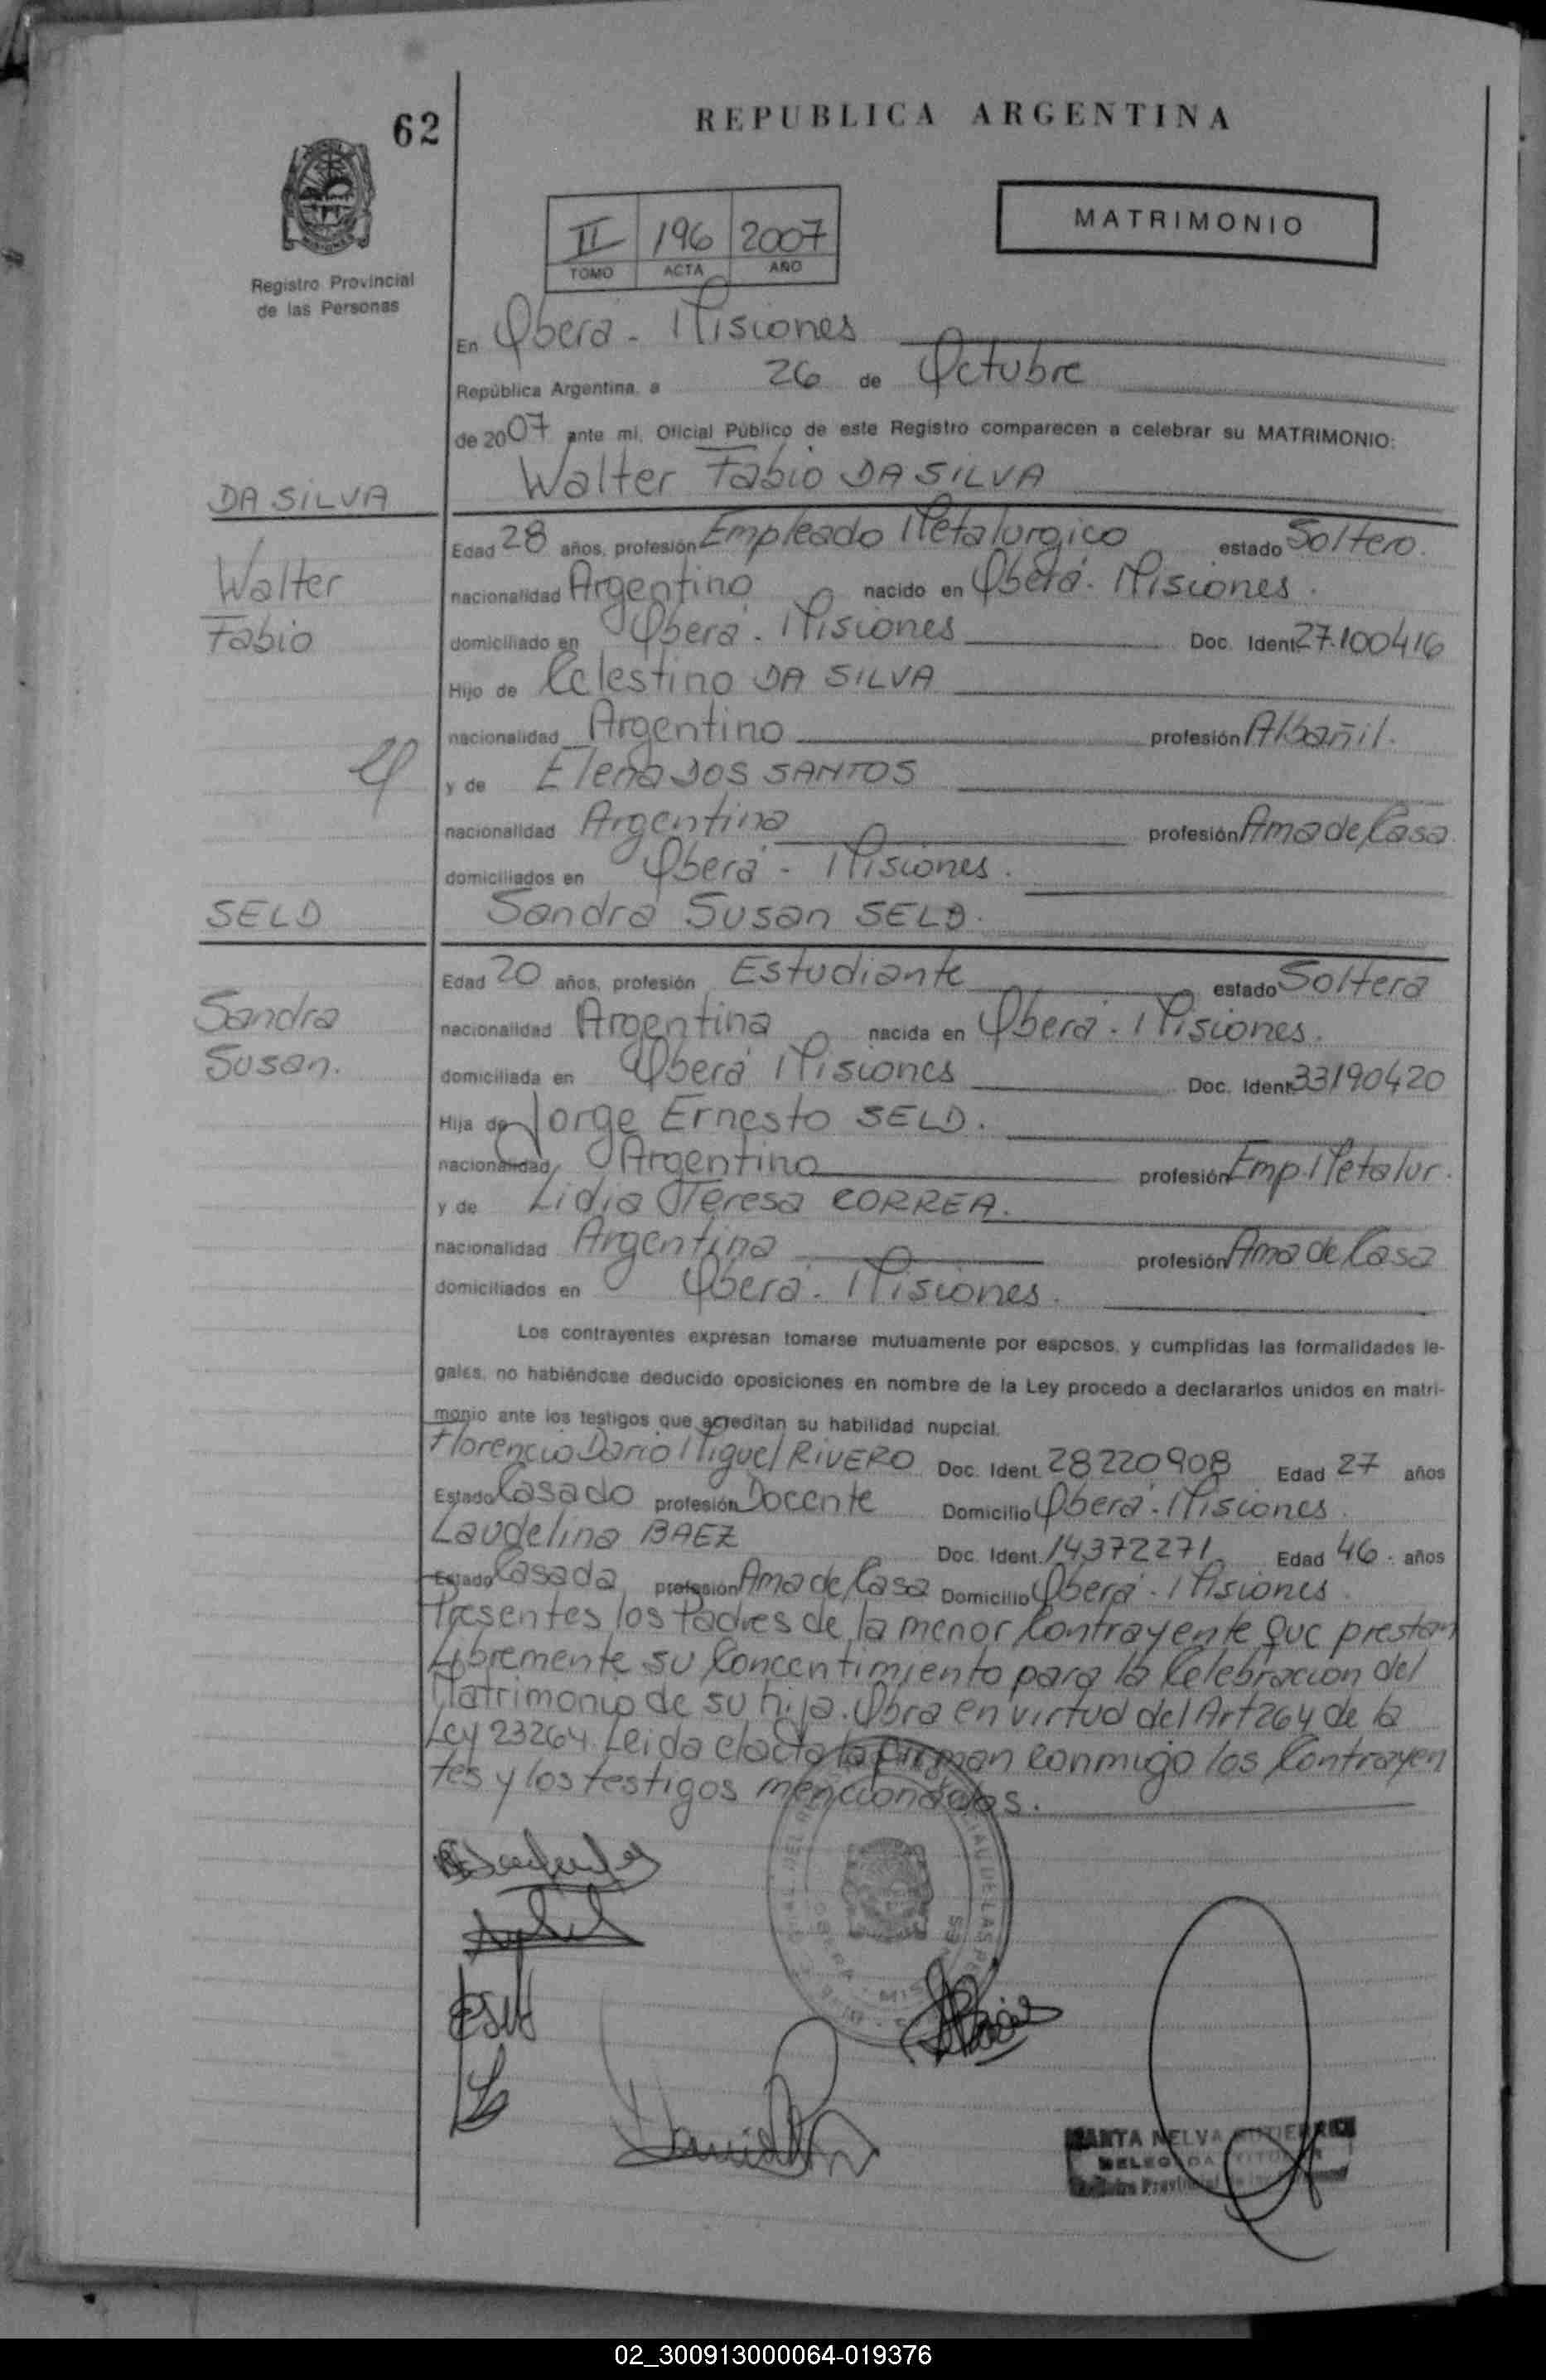 62
REPUBLICA ARGENTINA
II 196 2007
TOMO ACTA AÑO
MATRIMONIO
Registro Provincial
de las Personas
En Oberá - Misiones
República Argentina, a 26 de Octubre
de 2007 ante mi, Oficial Público de este Registro comparecen a celebrar su MATRIMONIO:
DA SILVA
Walter Fabio DA SILVA
Walter
Fabio
Edad 28 años, profesión Empleado Metalurgico estado Soltero.
nacionalidad Argentino nacido en Oberá - Misiones.
domiciliado en Oberá - Misiones Doc. Ident. 27.100416
Hijo de Celestino DA SILVA
nacionalidad Argentino profesión Albañil.
y de Elena DOS SANTOS
nacionalidad Argentina profesión Ama de Casa
domiciliados en Oberá - Misiones.
SELD
Sandra Susan SELD.
Sandra
Susan.
Edad 20 años, profesión Estudiante estado Soltera
nacionalidad Argentina nacida en Oberá - Misiones.
domiciliada en Oberá Misiones Doc. Ident. 33190420
Hija de Jorge Ernesto SELD.
nacionalidad Argentino profesión Emp. Metalur.
y de Lidia Teresa CORREA.
nacionalidad Argentina profesión Ama de Casa
domiciliados en Oberá - Misiones.
Los contrayentes expresan tomarse mutuamente por esposos, y cumplidas las formalidades le-
gales, no habiéndose deducido oposiciones en nombre de la Ley procedo a declararlos unidos en matri-
monio ante los testigos que acreditan su habilidad nupcial.
Florencio Dario Miguel RIVERO Doc. Ident. 28220908 Edad 27 años
Estado Casado profesión Docente Domicilio Oberá - Misiones.
Laudelina BAEZ Doc. Ident. 14372271 Edad 46 años
Estado Casada profesión Ama de Casa Domicilio Oberá - Misiones
Presentes los Padres de la menor Contrayente que prestan
Libremente su Concentimiento para la Celebracion del
Matrimonio de su hija. Obra en virtud del Art 264 de la
Ley 23264. Leida el acta la firman conmigo los Contrayen
tes y los testigos mencionados.
DELEGADA TITULAR
02_300913000064-019376